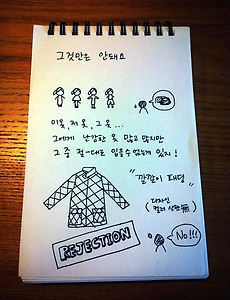 그것만은 안돼요
이옷, 저 옷, 그 옷...
그에게 낭감한 옷 많고 많지만
그 중 절-대로 있을수 없는게 있지!
"깔깔이 패딩"
(디자인
컬러 상관 無)
REJECTION
No!!!